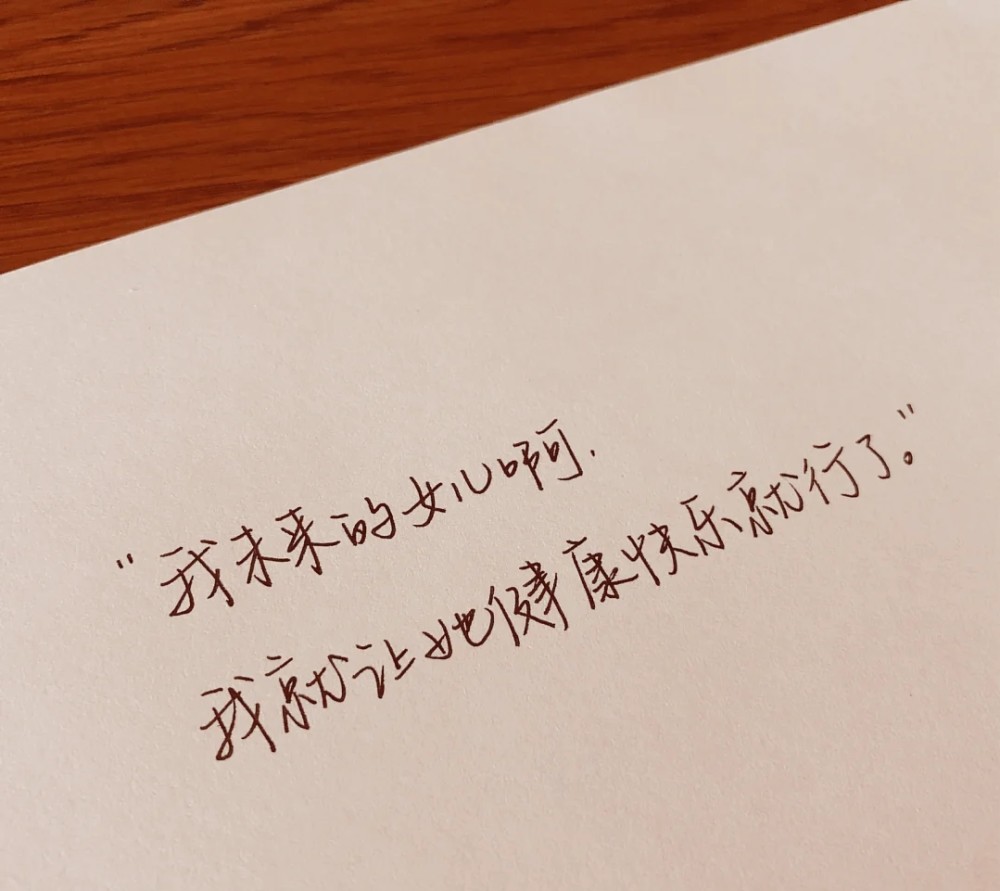 "我未来的女儿啊.
我就让她健康快乐就行了。"